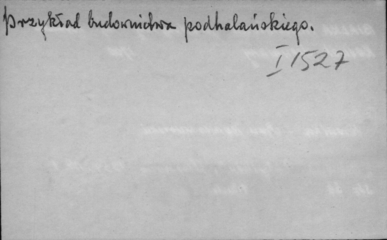 Przykład budownictwa podhalańskiego.
I 1527